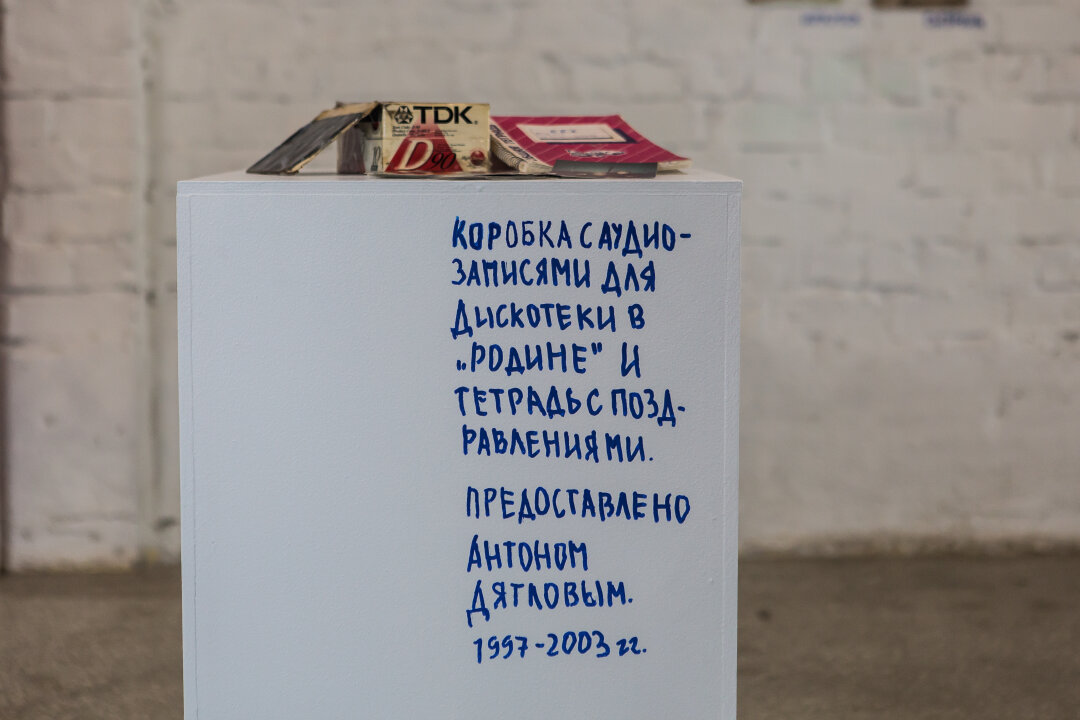 TDK
D90
КОРОБКА С АУДИО-
ЗАПИСЯМИ ДЛЯ
ДИСКОТЕКИ В
„РОДИНЕ" И
ТЕТРАДЬ С ПОЗД-
РАВЛЕНИЯМИ.
ПРЕДОСТАВЛЕНО
АНТОНОМ
ДЯТЛОВЫМ.
1997-2003 гг.